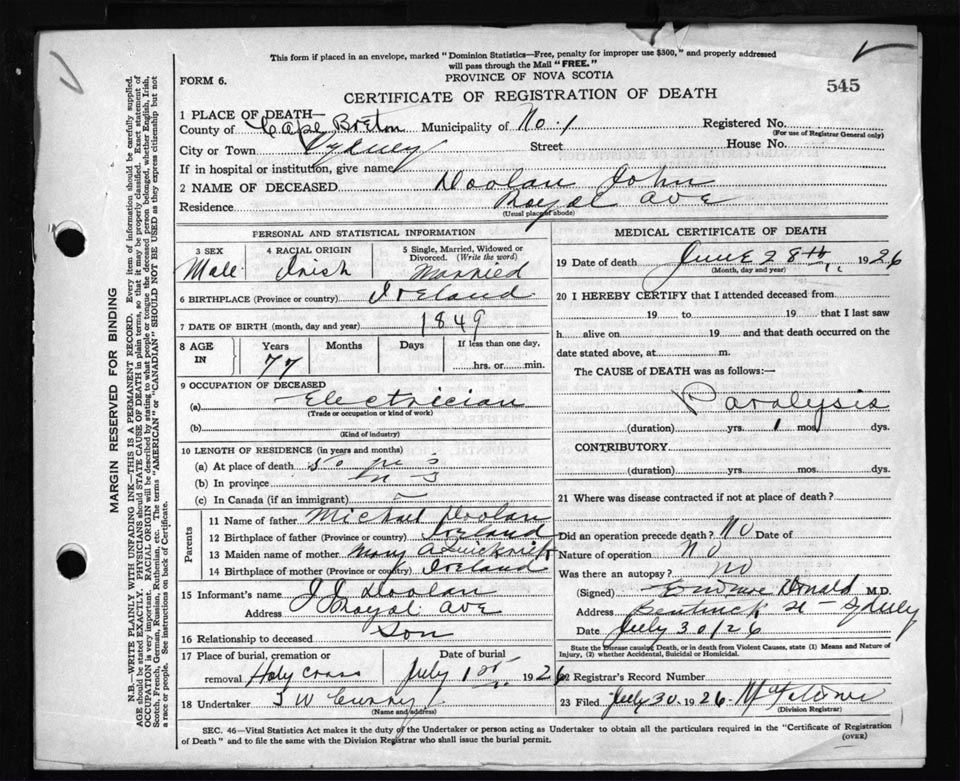 This form if placed in an envelope, marked "Dominion Statistics—Free, penalty for improper use $300," and properly addressed
will pass through the Mail "FREE."
FORM 6.
PROVINCE OF NOVA SCOTIA
545
CERTIFICATE OF REGISTRATION OF DEATH
1 PLACE OF DEATH—
County of Cape Breton Municipality of No. 1 Registered No.
(For use of Registrar General only)
City or Town Sydney Street House No.
If in hospital or institution, give name
2 NAME OF DECEASED Doolan John
Residence Royal Ave
(Usual place of abode)
PERSONAL AND STATISTICAL INFORMATION
3 SEX 4 RACIAL ORIGIN 5 Single, Married, Widowed or
Divorced. (Write the word)
Male Irish Married
6 BIRTHPLACE (Province or country) Ireland
7 DATE OF BIRTH (month, day and year) 1849
8 AGE IN Years Months Days If less than one day,
77 hrs. or min.
9 OCCUPATION OF DECEASED
(a) Electrician
(Trade or occupation or kind of work)
(b)
(Kind of industry)
10 LENGTH OF RESIDENCE (in years and months)
(a) At place of death 50
(b) In province
(c) In Canada (if an immigrant)
Parents
11 Name of father Michael Doolan
12 Birthplace of father (Province or country) Ireland
13 Maiden name of mother Mary A
14 Birthplace of mother (Province or country) Ireland
15 Informant's name J J Doolan
Address Royal Ave
16 Relationship to deceased Son
17 Place of burial, cremation or Date of burial
removal Holy Cross July 1st 1926
18 Undertaker J W Curry
(Name and address)
MEDICAL CERTIFICATE OF DEATH
19 Date of death June 28th 1926
(Month, day and year)
20 I HEREBY CERTIFY that I attended deceased from
19 to 19 that I last saw
h alive on 19 and that death occurred on the
date stated above, at m.
The CAUSE of DEATH was as follows:—
Paralysis
(duration) yrs. 1 mos. dys.
CONTRIBUTORY.
(duration) yrs. mos. dys.
21 Where was disease contracted if not at place of death?
Did an operation precede death? No Date of
Nature of operation No
Was there an autopsy? No
(Signed) Donald M.D.
Address St - Sydney
Date July 30/26
State the Disease causing Death, or in death from Violent Causes, state (1) Means and Nature of
Injury, (2) whether Accidental, Suicidal or Homicidal.
22 Registrar's Record Number
23 Filed July 30 1926
(Division Registrar)
SEC. 46—Vital Statistics Act makes it the duty of the Undertaker or person acting as Undertaker to obtain all the particulars required in the "Certificate of Registration
of Death" and to file the same with the Division Registrar who shall issue the burial permit.
(OVER)
MARGIN RESERVED FOR BINDING
N.B.—WRITE PLAINLY WITH UNFADING INK—THIS IS A PERMANENT RECORD. Every item of information should be carefully supplied.
AGE should be stated EXACTLY. PHYSICIANS should STATE CAUSE OF DEATH in plain terms, so that it may be properly classified. Exact statement of
OCCUPATION is very important. RACIAL ORIGIN will be described by stating to what people or tongue the deceased person belonged, whether English, Irish,
Scotch, French, German, Russian, Ruthenian, etc. The terms "AMERICAN" or "CANADIAN" SHOULD NOT BE USED as they express citizenship but not
a race or people. See instructions on back of Certificate.